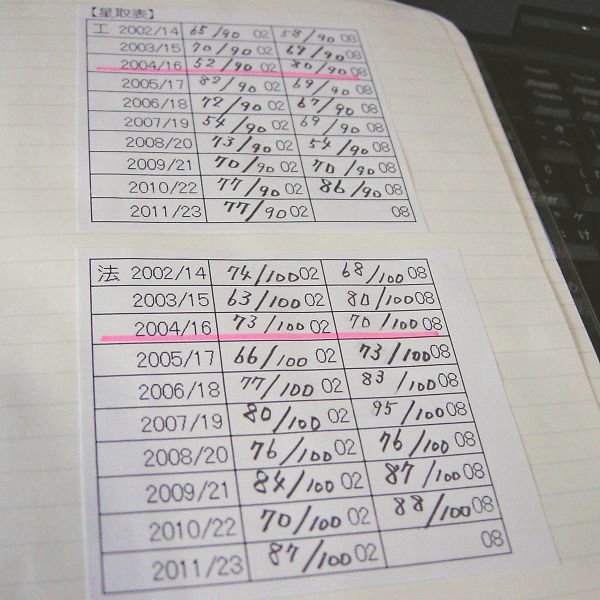 【星取表】
工 2002/14 65/90 02 58/90 08
2003/15 70/90 02 69/90 08
2004/16 52/90 02 80/90 08
2005/17 82/90 02 69/90 08
2006/18 72/90 02 67/90 08
2007/19 54/90 02 69/90 08
2008/20 73/90 02 54/90 08
2009/21 70/90 02 70/90 08
2010/22 77/90 02 86/90 08
2011/23 77/90 02 08
法 2002/14 74/100 02 68/100 08
2003/15 63/100 02 80/100 08
2004/16 73/100 02 70/100 08
2005/17 66/100 02 73/100 08
2006/18 77/100 02 83/100 08
2007/19 80/100 02 95/100 08
2008/20 76/100 02 76/100 08
2009/21 84/100 02 87/100 08
2010/22 70/100 02 88/100 08
2011/23 87/100 02 08